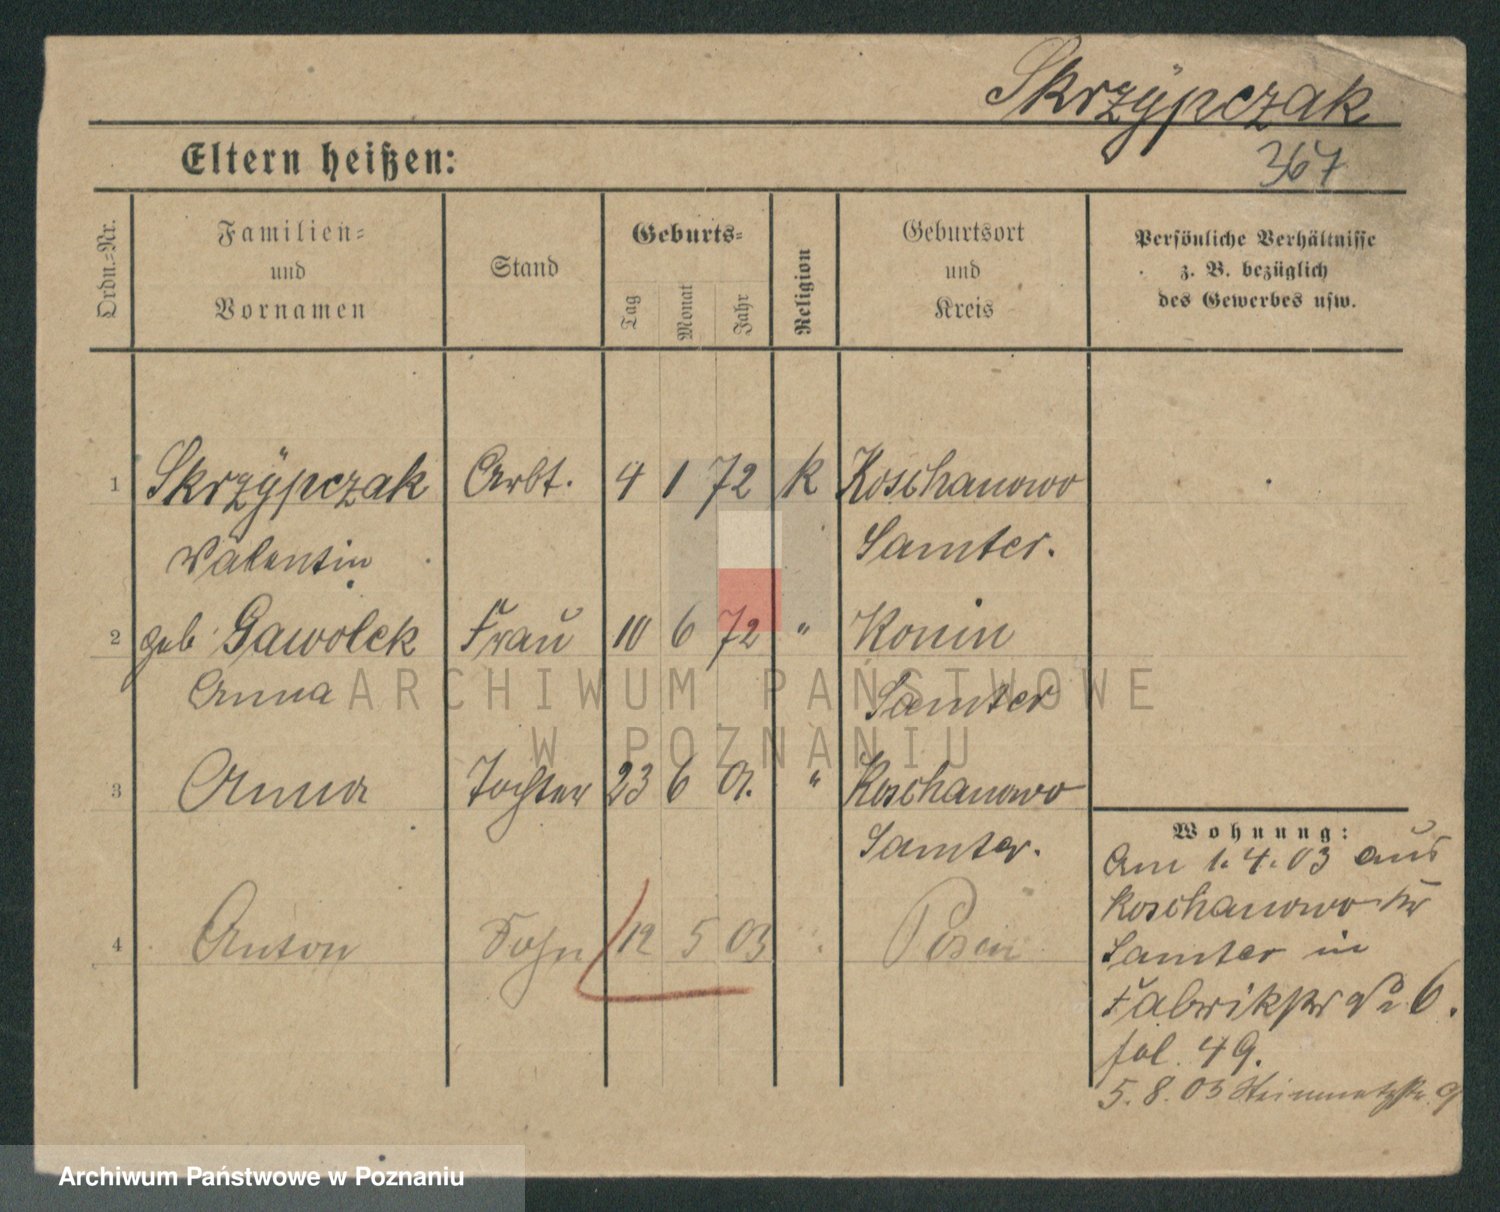 Skrzÿpczak
Eltern heißen:
367
Ordn.-Nr.
Familien-
und
Vornamen
Stand
Geburts-
Tag
Monat
Jahr
Religion
Geburtsort
und
Kreis
Persönliche Verhältnisse
z. B. bezüglich
des Gewerbes usw.
1 Skrzÿpczak Arbt. 4 1 72 K Koschanowo
Valentin Samter.
2 geb Gawolek Frau 10 6 72 " Konin
Anna Samter
3 Anna Tochter 23 6 01. " Koschanowo
Samter.
4 Anton Sohn 12 5 03 Posen
Wohnung:
Am 1.4.03 aus
Koschanowo Kr
Samter in
Fabrikstr No 6.
fol. 49.
5.8.03
ARCHIWUM PAŃSTWOWE
W POZNANIU
Archiwum Państwowe w Poznaniu